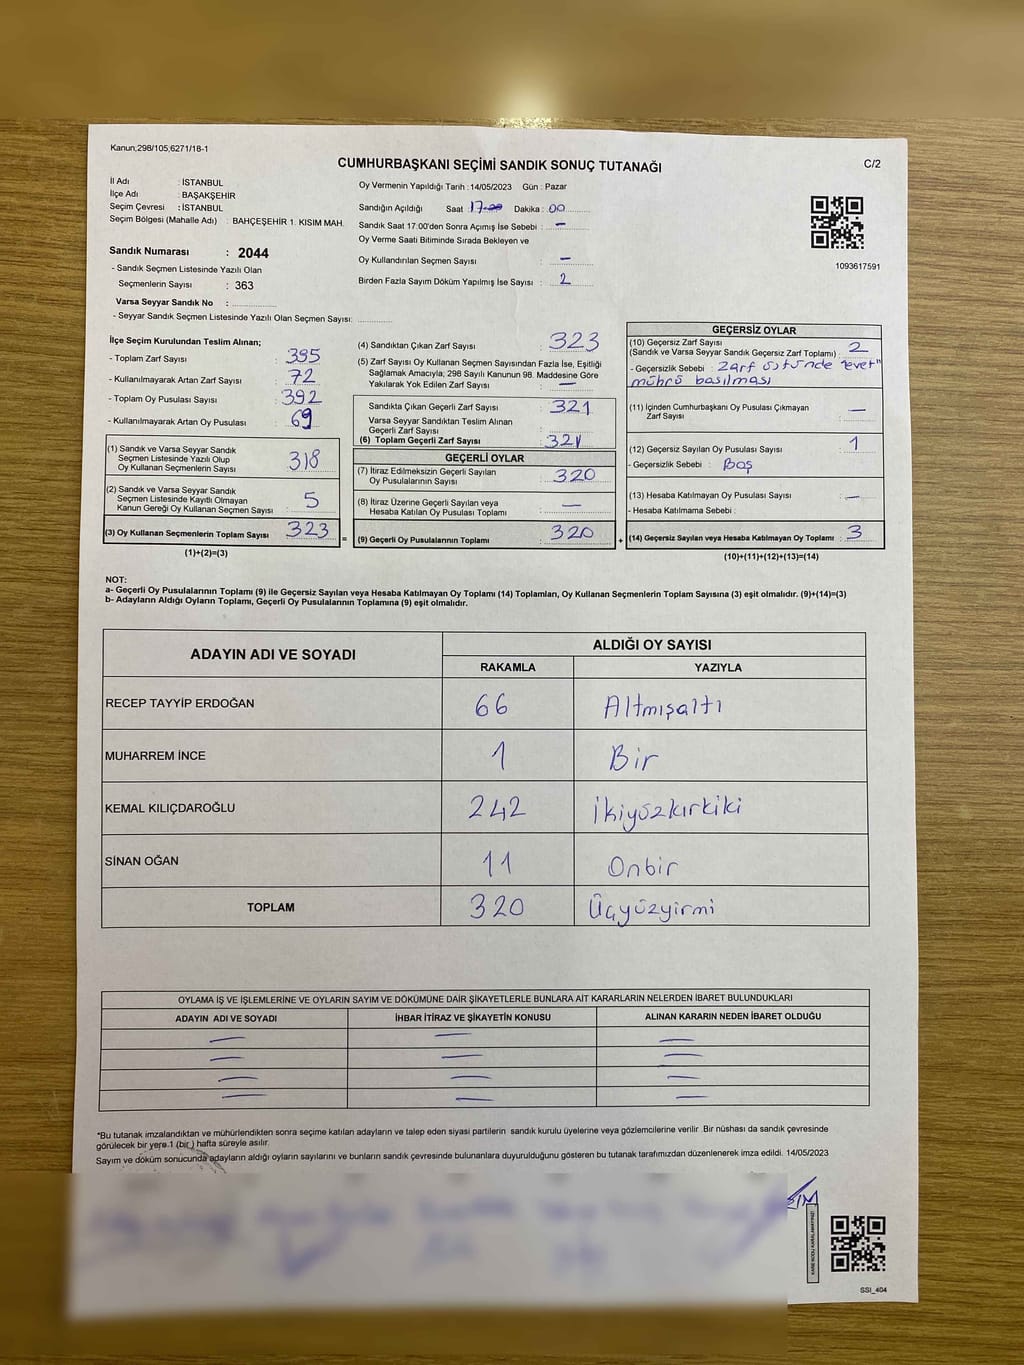 Kanun,298/105,6271/18-1
CUMHURBAŞKANI SEÇİMİ SANDIK SONUÇ TUTANAĞI
C/2
İl Adı : İSTANBUL
İlçe Adı : BAŞAKŞEHİR
Seçim Çevresi : İSTANBUL
Seçim Bölgesi (Mahalle Adı) : BAHÇEŞEHİR 1. KISIM MAH.
Sandık Numarası : 2044
- Sandık Seçmen Listesinde Yazılı Olan
Seçmenlerin Sayısı : 363
Varsa Seyyar Sandık No :
- Seyyar Sandık Seçmen Listesinde Yazılı Olan Seçmen Sayısı:
Oy Vermenin Yapıldığı Tarih :14/05/2023 Gün : Pazar
Sandığın Açıldığı Saat : 17 Dakika : 00
Sandık Saat 17:00'den Sonra Açımış İse Sebebi : —
Oy Verme Saati Bitiminde Sırada Bekleyen ve
Oy Kullandırılan Seçmen Sayısı : —
Birden Fazla Sayım Döküm Yapılmış İse Sayısı : 2
1093617591
İlçe Seçim Kurulundan Teslim Alınan;
- Toplam Zarf Sayısı : 395
- Kullanılmayarak Artan Zarf Sayısı : 72
- Toplam Oy Pusulası Sayısı : 392
- Kullanılmayarak Artan Oy Pusulası : 69
(1) Sandık ve Varsa Seyyar Sandık
Seçmen Listesinde Yazılı Olup
Oy Kullanan Seçmenlerin Sayısı : 318
(2) Sandık ve Varsa Seyyar Sandık
Seçmen Listesinde Kayıtlı Olmayan
Kanun Gereği Oy Kullanan Seçmen Sayısı : 5
(3) Oy Kullanan Seçmenlerin Toplam Sayısı : 323
(1)+(2)=(3)
(4) Sandıktan Çıkan Zarf Sayısı : 323
(5) Zarf Sayısı Oy Kullanan Seçmen Sayısından Fazla İse, Eşitliği
Sağlamak Amacıyla; 298 Sayılı Kanunun 98. Maddesine Göre
Yakılarak Yok Edilen Zarf Sayısı : —
Sandıkta Çıkan Geçerli Zarf Sayısı : 321
Varsa Seyyar Sandıktan Teslim Alınan
Geçerli Zarf Sayısı :
(6) Toplam Geçerli Zarf Sayısı : 321
GEÇERLİ OYLAR
(7) İtiraz Edilmeksizin Geçerli Sayılan
Oy Pusulalarının Sayısı : 320
(8) İtiraz Üzerine Geçerli Sayılan veya
Hesaba Katılan Oy Pusulası Toplamı : —
= (9) Geçerli Oy Pusulalarının Toplamı : 320
GEÇERSİZ OYLAR
(10) Geçersiz Zarf Sayısı
(Sandık ve Varsa Seyyar Sandık Geçersiz Zarf Toplamı) : 2
- Geçersizlik Sebebi : Zarf üstünde "evet"
mührü basılması
(11) İçinden Cumhurbaşkanı Oy Pusulası Çıkmayan
Zarf Sayısı : —
(12) Geçersiz Sayılan Oy Pusulası Sayısı : 1
- Geçersizlik Sebebi : Boş
(13) Hesaba Katılmayan Oy Pusulası Sayısı : —
- Hesaba Katılmama Sebebi :
+ (14) Geçersiz Sayılan veya Hesaba Katılmayan Oy Toplamı : 3
(10)+(11)+(12)+(13)=(14)
NOT:
a- Geçerli Oy Pusulalarının Toplamı (9) ile Geçersiz Sayılan veya Hesaba Katılmayan Oy Toplamı (14) Toplamları, Oy Kullanan Seçmenlerin Toplam Sayısına (3) eşit olmalıdır. (9)+(14)=(3)
b- Adayların Aldığı Oyların Toplamı, Geçerli Oy Pusulalarının Toplamına (9) eşit olmalıdır.
ADAYIN ADI VE SOYADI ALDIĞI OY SAYISI
RAKAMLA YAZIYLA
RECEP TAYYİP ERDOĞAN 66 Altmışaltı
MUHARREM İNCE 1 Bir
KEMAL KILIÇDAROĞLU 242 İkiyüzkırkiki
SİNAN OĞAN 11 Onbir
TOPLAM 320 Üçyüzyirmi
OYLAMA İŞ VE İŞLEMLERİNE VE OYLARIN SAYIM VE DÖKÜMÜNE DAİR ŞİKAYETLERLE BUNLARA AİT KARARLARIN NELERDEN İBARET BULUNDUKLARI
ADAYIN ADI VE SOYADI İHBAR İTİRAZ VE ŞİKAYETİN KONUSU ALINAN KARARIN NEDEN İBARET OLDUĞU
— — —
— — —
— — —
— — —
*Bu tutanak imzalandıktan ve mühürlendikten sonra seçime katılan adayların ve talep eden siyasi partilerin sandık kurulu üyelerine veya gözlemcilerine verilir. Bir nüshası da sandık çevresinde
görülecek bir yere 1 (bir ) hafta süreyle asılır.
Sayım ve döküm sonucunda adayların aldığı oyların sayılarını ve bunların sandık çevresinde bulunanlara duyurulduğunu gösteren bu tutanak tarafımızdan düzenlenerek imza edildi. 14/05/2023
KARE KODU KARALAMAYINIZ!
SSI_404